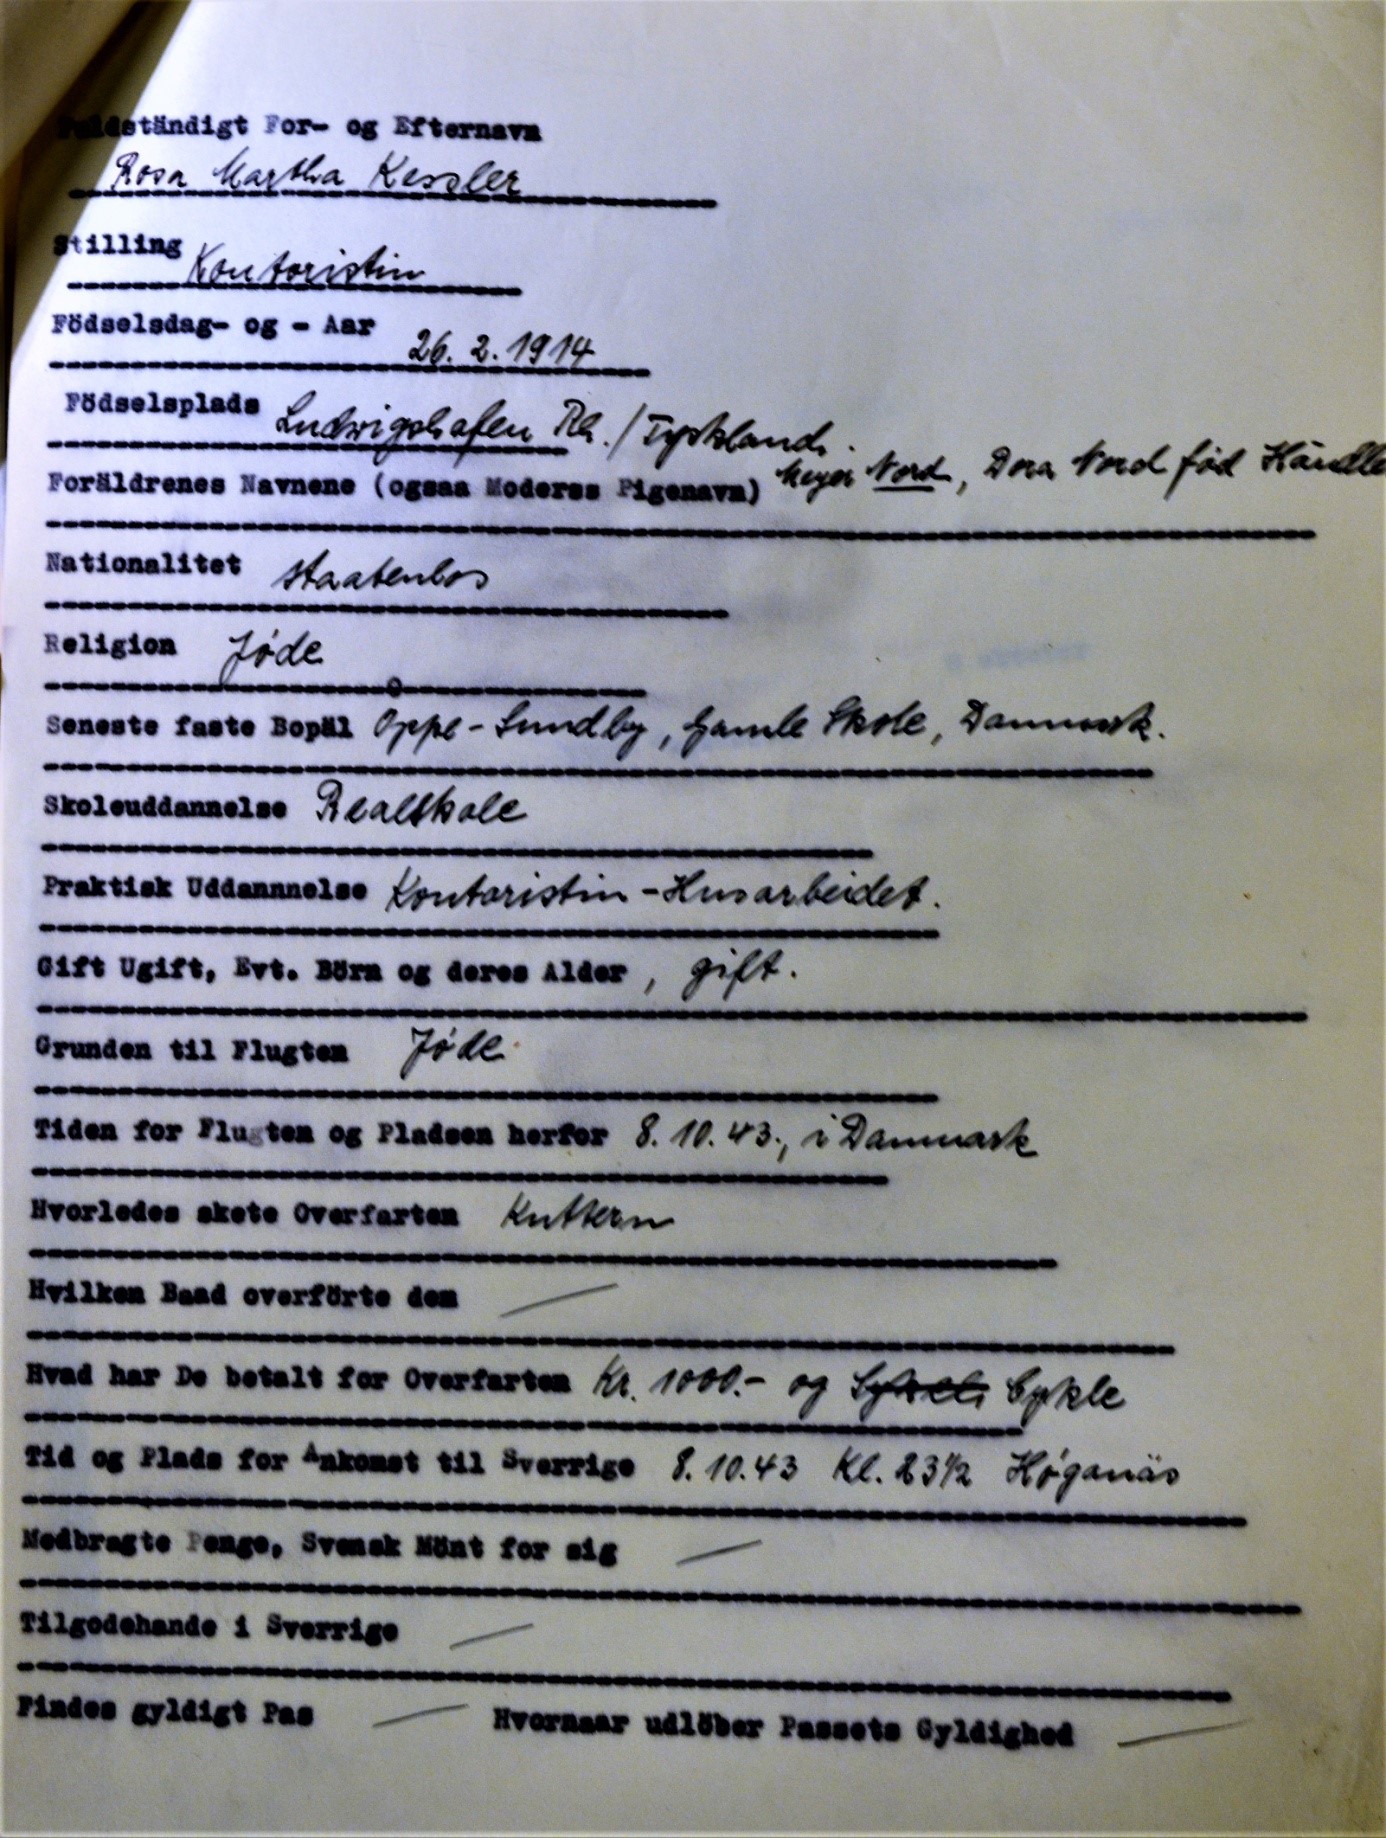 Fuldständigt For- og Efternavn
Rosa Martha Kessler
Stilling Kontoristin
Födselsdag- og - Aar 26. 2. 1914
Födselsplads Ludwigshafen Rh. / Tyskland.
Foräldrenes Navnene (ogsaa Moderes Pigenavn) Meyer Nord, Dora Nord fød
Nationalitet staatenlos
Religion Jøde
Seneste faste Bopäl Oppe-Sundby, Gamle Skole, Danmark.
Skoleuddannelse Realskole
Praktisk Uddannnelse Kontoristin - Husarbeidet.
Gift Ugift, Evt. Börn og deres Alder , gift.
Grunden til Flugten Jøde
Tiden for Flugten og Pladsen herfor 8. 10. 43., i Danmark
Hvorledes skete Overfarten Kuttern
Hvilken Baad overförte dem
Hvad har De betalt for Overfarten Kr. 1000.- og Cykle
Tid og Plads for Ankomst til Sverrige 8. 10. 43 Kl. 23½ Høganäs
Medbragte Penge, Svensk Mönt for sig
Tilgodehande i Sverrige
Findes gyldigt Pas Hvornaar udlöber Passets Gyldighed